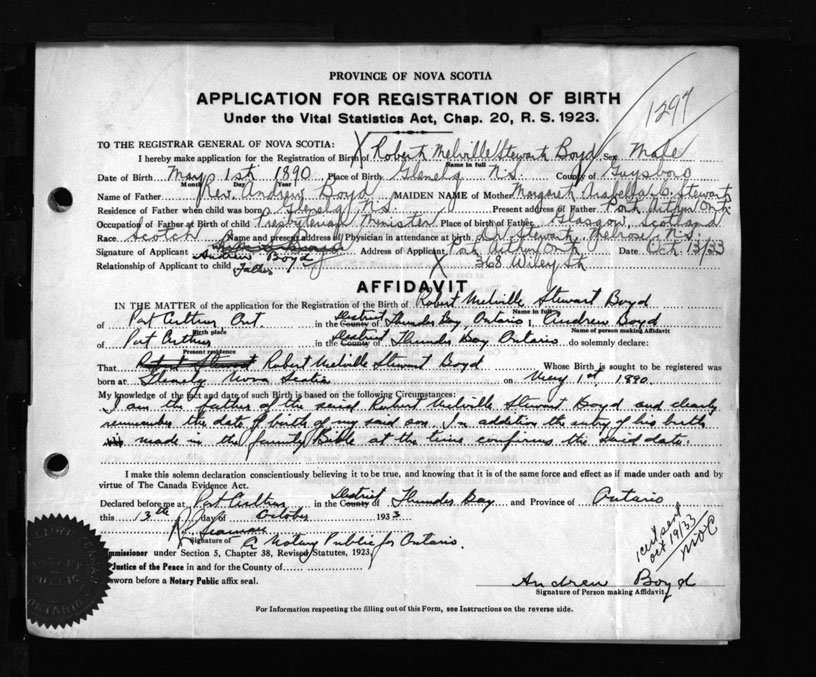 PROVINCE OF NOVA SCOTIA
APPLICATION FOR REGISTRATION OF BIRTH
Under the Vital Statistics Act, Chap. 20, R. S. 1923.
1297
TO THE REGISTRAR GENERAL OF NOVA SCOTIA:
I hereby make application for the Registration of Birth of Robert Melville Stewart Boyd Sex Male
Name in full
Date of Birth May 1st 1890 Place of Birth Glenelg N.S. County of Guysboro
Month Day Year
Name of Father Rev. Andrew Boyd MAIDEN NAME of Mother Margaret Arabella S. Stewart
Residence of Father when child was born Glenelg N.S. Present address of Father Port Arthur Ont.
Occupation of Father at Birth of child Presbyterian Minister Place of Birth of Father Glasgow, Scotland
Race Scotch Name and present address of Physician in attendance at birth Dr. Stewart, Melrose, N.S.
Signature of Applicant Andrew Boyd Address of Applicant Port Arthur Ont Date Oct. 13/33
Relationship of Applicant to child Father 368 Wiley St.
AFFIDAVIT
IN THE MATTER of the application for the Registration of the Birth of Robert Melville Stewart Boyd
Name in full
of Port Arthur, Ont. in the County of District Thunder Bay Ontario I, Andrew Boyd
Birth place Name of person making Affidavit
of Port Arthur in the County of District Thunder Bay Ontario. do solemnly declare:
Present residence
That Robert Melville Stewart Boyd Whose Birth is sought to be registered was
born at Glenelg Nova Scotia on May 1st, 1890.
My knowledge of the fact and date of such Birth is based on the following Circumstances:
I am the father of the said Robert Melville Stewart Boyd and clearly
remember the date of birth of my said son. In addition the entry of his birth
made in the family Bible at the time confirms the said date.
I make this solemn declaration conscientiously believing it to be true, and knowing that it is of the same force and effect as if made under oath and by
virtue of The Canada Evidence Act.
Declared before me at Port Arthur in the County of District Thunder Bay and Province of Ontario
this 13th day of October 1933
Signature of A Notary Public for Ontario.
Commissioner under Section 5, Chapter 38, Revised Statutes, 1923
Justice of the Peace in and for the County of
sworn before a Notary Public affix seal.
1 cert sent
Oct 19/33
Andrew Boyd
Signature of Person making Affidavit
For Information respecting the filling out of this Form, see Instructions on the reverse side.